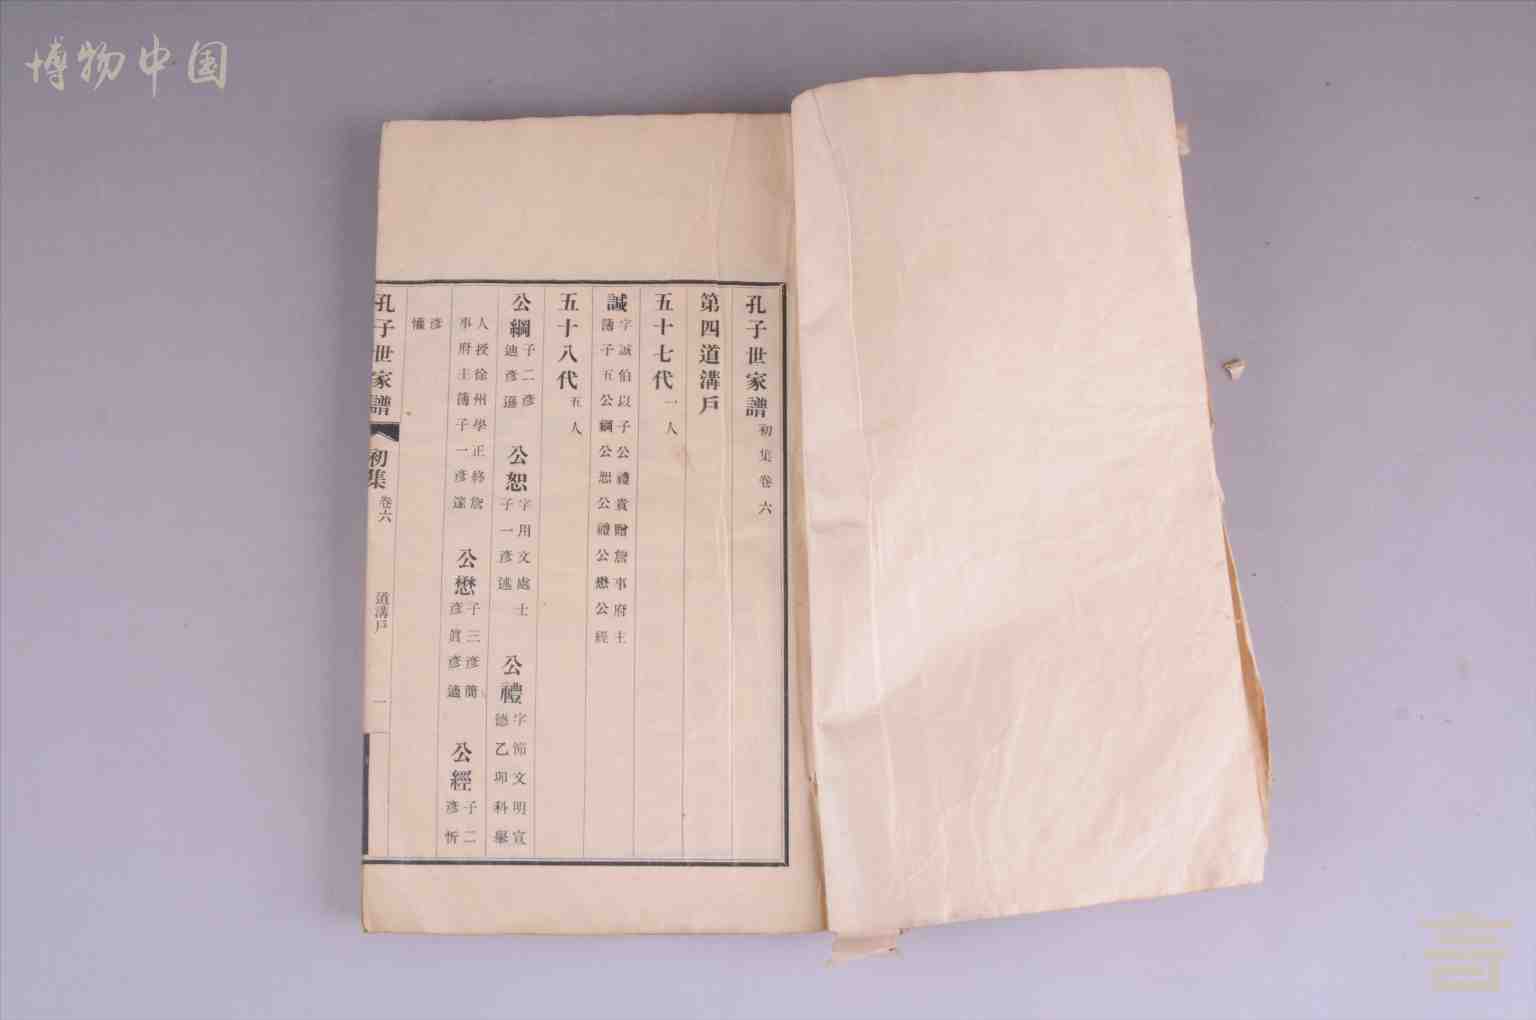 博物中国
孔子世家譜初集卷六
第四道溝戶
五十七代一人
誠字誠伯以子公禮貴贈詹事府主
簿子五公綱公恕公禮公懋公經
五十八代五人
公綱子二彥
迪彥
公恕字用文處士
子一彥述
公禮字節文明宣
德乙卯科舉
人授徐州學正終詹
事府主簿子一彥遠
公懋子三彥簡
彥眞彥
公經子二
彥忻
彥
孔子世家譜 初集 卷六 道溝戶 一